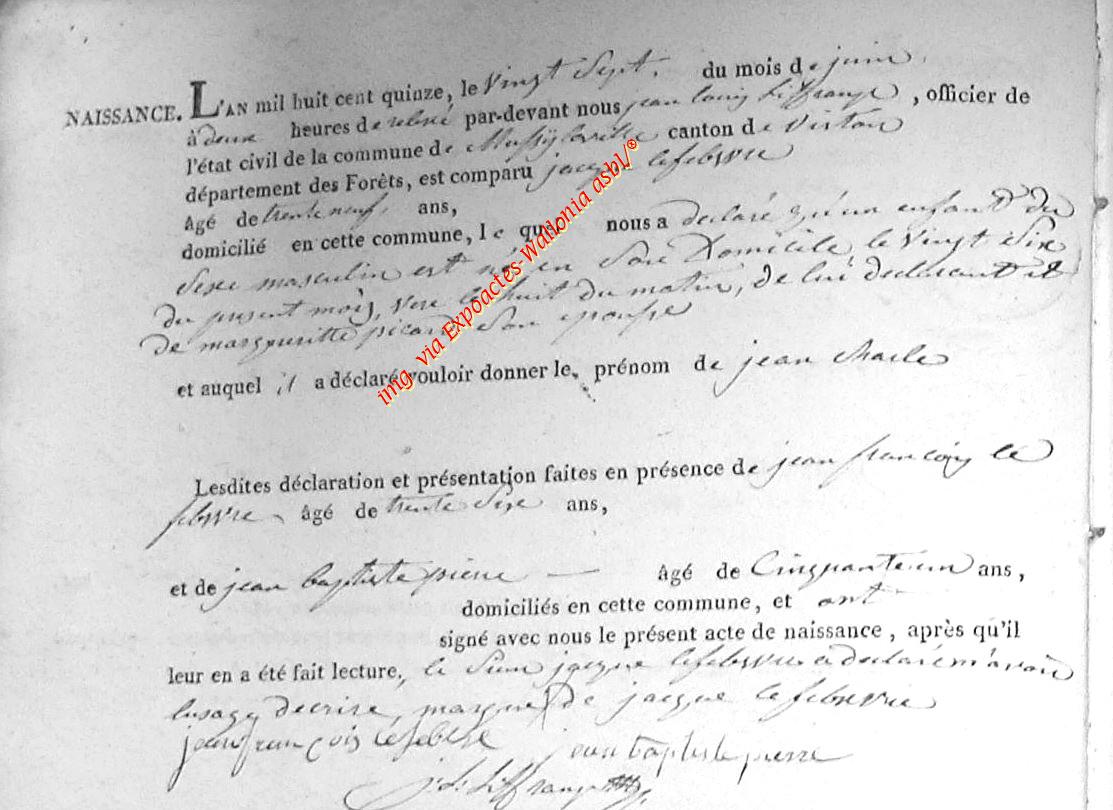 NAISSANCE. L'AN mil huit cent quinze, le Vingt Sept. du mois de juin
à deux heures de relevé par-devant nous jean louis Liffrange, officier de
l'état civil de la commune de Mussylaville canton de Virton
département des Forêts, est comparu jacque lefebvre
âgé de trente neuf ans,
domicilié en cette commune, le quel nous a declaré qu'un enfant du
Sexe masculin est né en Son Domicile le Vingt Six
du present mois, vers les huit du matin, de lui declarant et
de margueritte picard Son epouse
et auquel il a déclaré vouloir donner le prénom de jean charle
Lesdites déclaration et présentation faites en présence de jean françois le
febvre âgé de trente Six ans,
et de jean baptiste pierre — âgé de Cinquante un ans,
domiciliés en cette commune, et ont
signé avec nous le présent acte de naissance, après qu'il
leur en a été fait lecture, le jacque lefebvre a declaré n'avoir
lusage decrire, marque de jacque lefebvre
jean françois lefebvre jean baptiste pierre
j. l. Liffrange
img via Expoactes-Wallonia asbl/®